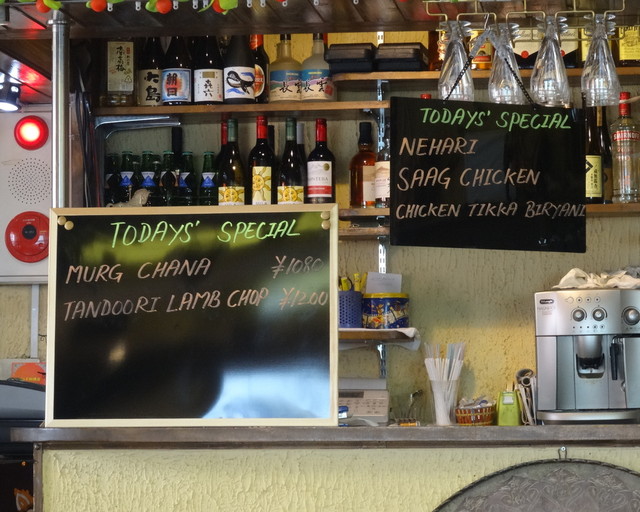 TODAYS' SPECIAL
MURG CHANA ¥1080
TANDOORI LAMB CHOP ¥1200
TODAYS' SPECIAL
NEHARI
SAAG CHICKEN
CHICKEN TIKKA BIRYANI